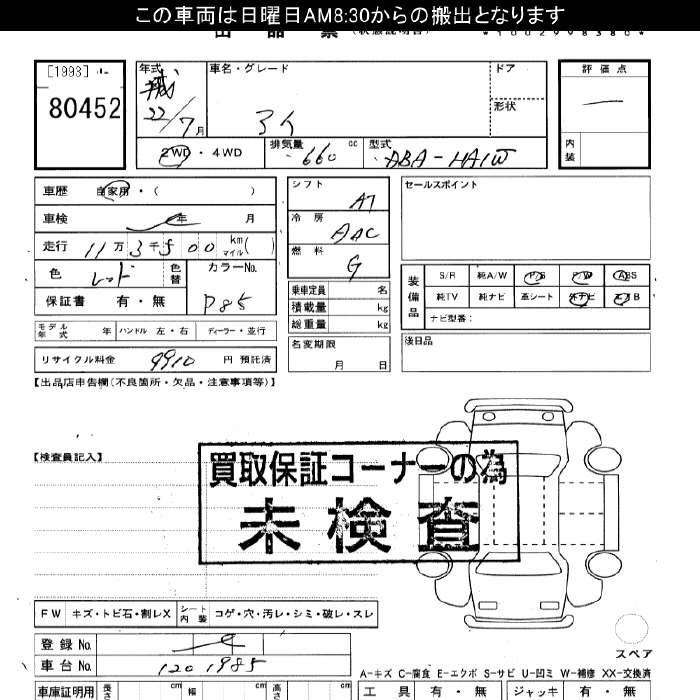 この車両は日曜日AM8:30からの搬出となります
出 品 票
[1993]
80452
年式 車名・グレード ドア 評価点
平成
22/7月
アイ
形状
内装
2WD・4WD 排気量 660 cc 型式 ABA-HA1W
車歴 自家用・( )
シフト AT
セールスポイント
車検 年 月
冷房 AAC
走行 11万3千500 km マイル( )
燃料 G
色 レッド 色替 カラーNo. P85
保証書 有・無
乗車定員 名
積載量 kg
総重量 kg
装備品 S/R 純A/W P/S P/W ABS
純TV 純ナビ 革シート 外ナビ エアB
ナビ型番:
モデル年式 年 ハンドル 左・右 ディーラー・並行
名変期限 月 日
後日品
リサイクル料金 9910 円 預託済
【出品店申告欄(不良箇所・欠品・注意事項等)】
【検査員記入】
買取保証コーナーの為
未検査
FW キズ・トビ石・割レX シート内装 コゲ・穴・汚レ・シミ・破レ・スレ
登録No.
車台No. 1201985
スペア
A-キズ C-腐食 E-エクボ S-サビ U-凹ミ W-補修 XX-交換済
車庫証明用 長さ cm 幅 cm 高さ cm
工具 有・無 ジャッキ 有・無